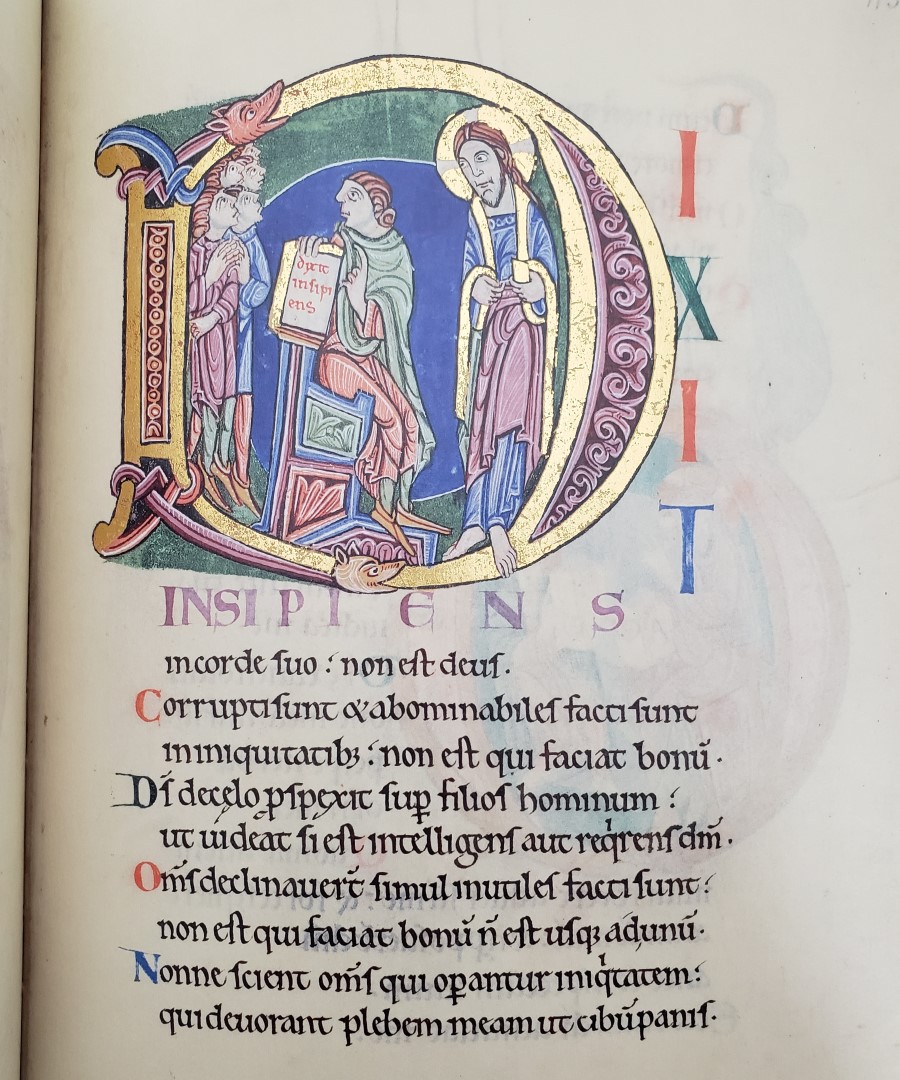 D
I
X
I
T
dixit
inſipi
enſ
INSIPIENS
incorde ſuo : non eſt deuſ.
Corrupti ſunt & abominabileſ facti ſunt
ininiquitatibꝫ : non eſt qui faciat bonū.
Dſ̄ decęlo ꝓſpexit ſuꝑ filioſ hominum :
ut uideat ſi eſt intelligenſ aut reqͥrenſ dm̄.
Om̄ſ declinauer̄t ſimul inutileſ facti ſunt :
non eſt qui faciat bonū n̄ eſt uſqꝫ adunū.
Nonne ſcient om̄ſ qui oꝑantur iniqͥtatem :
qui deuorant plebem meam ut cibū paniſ.